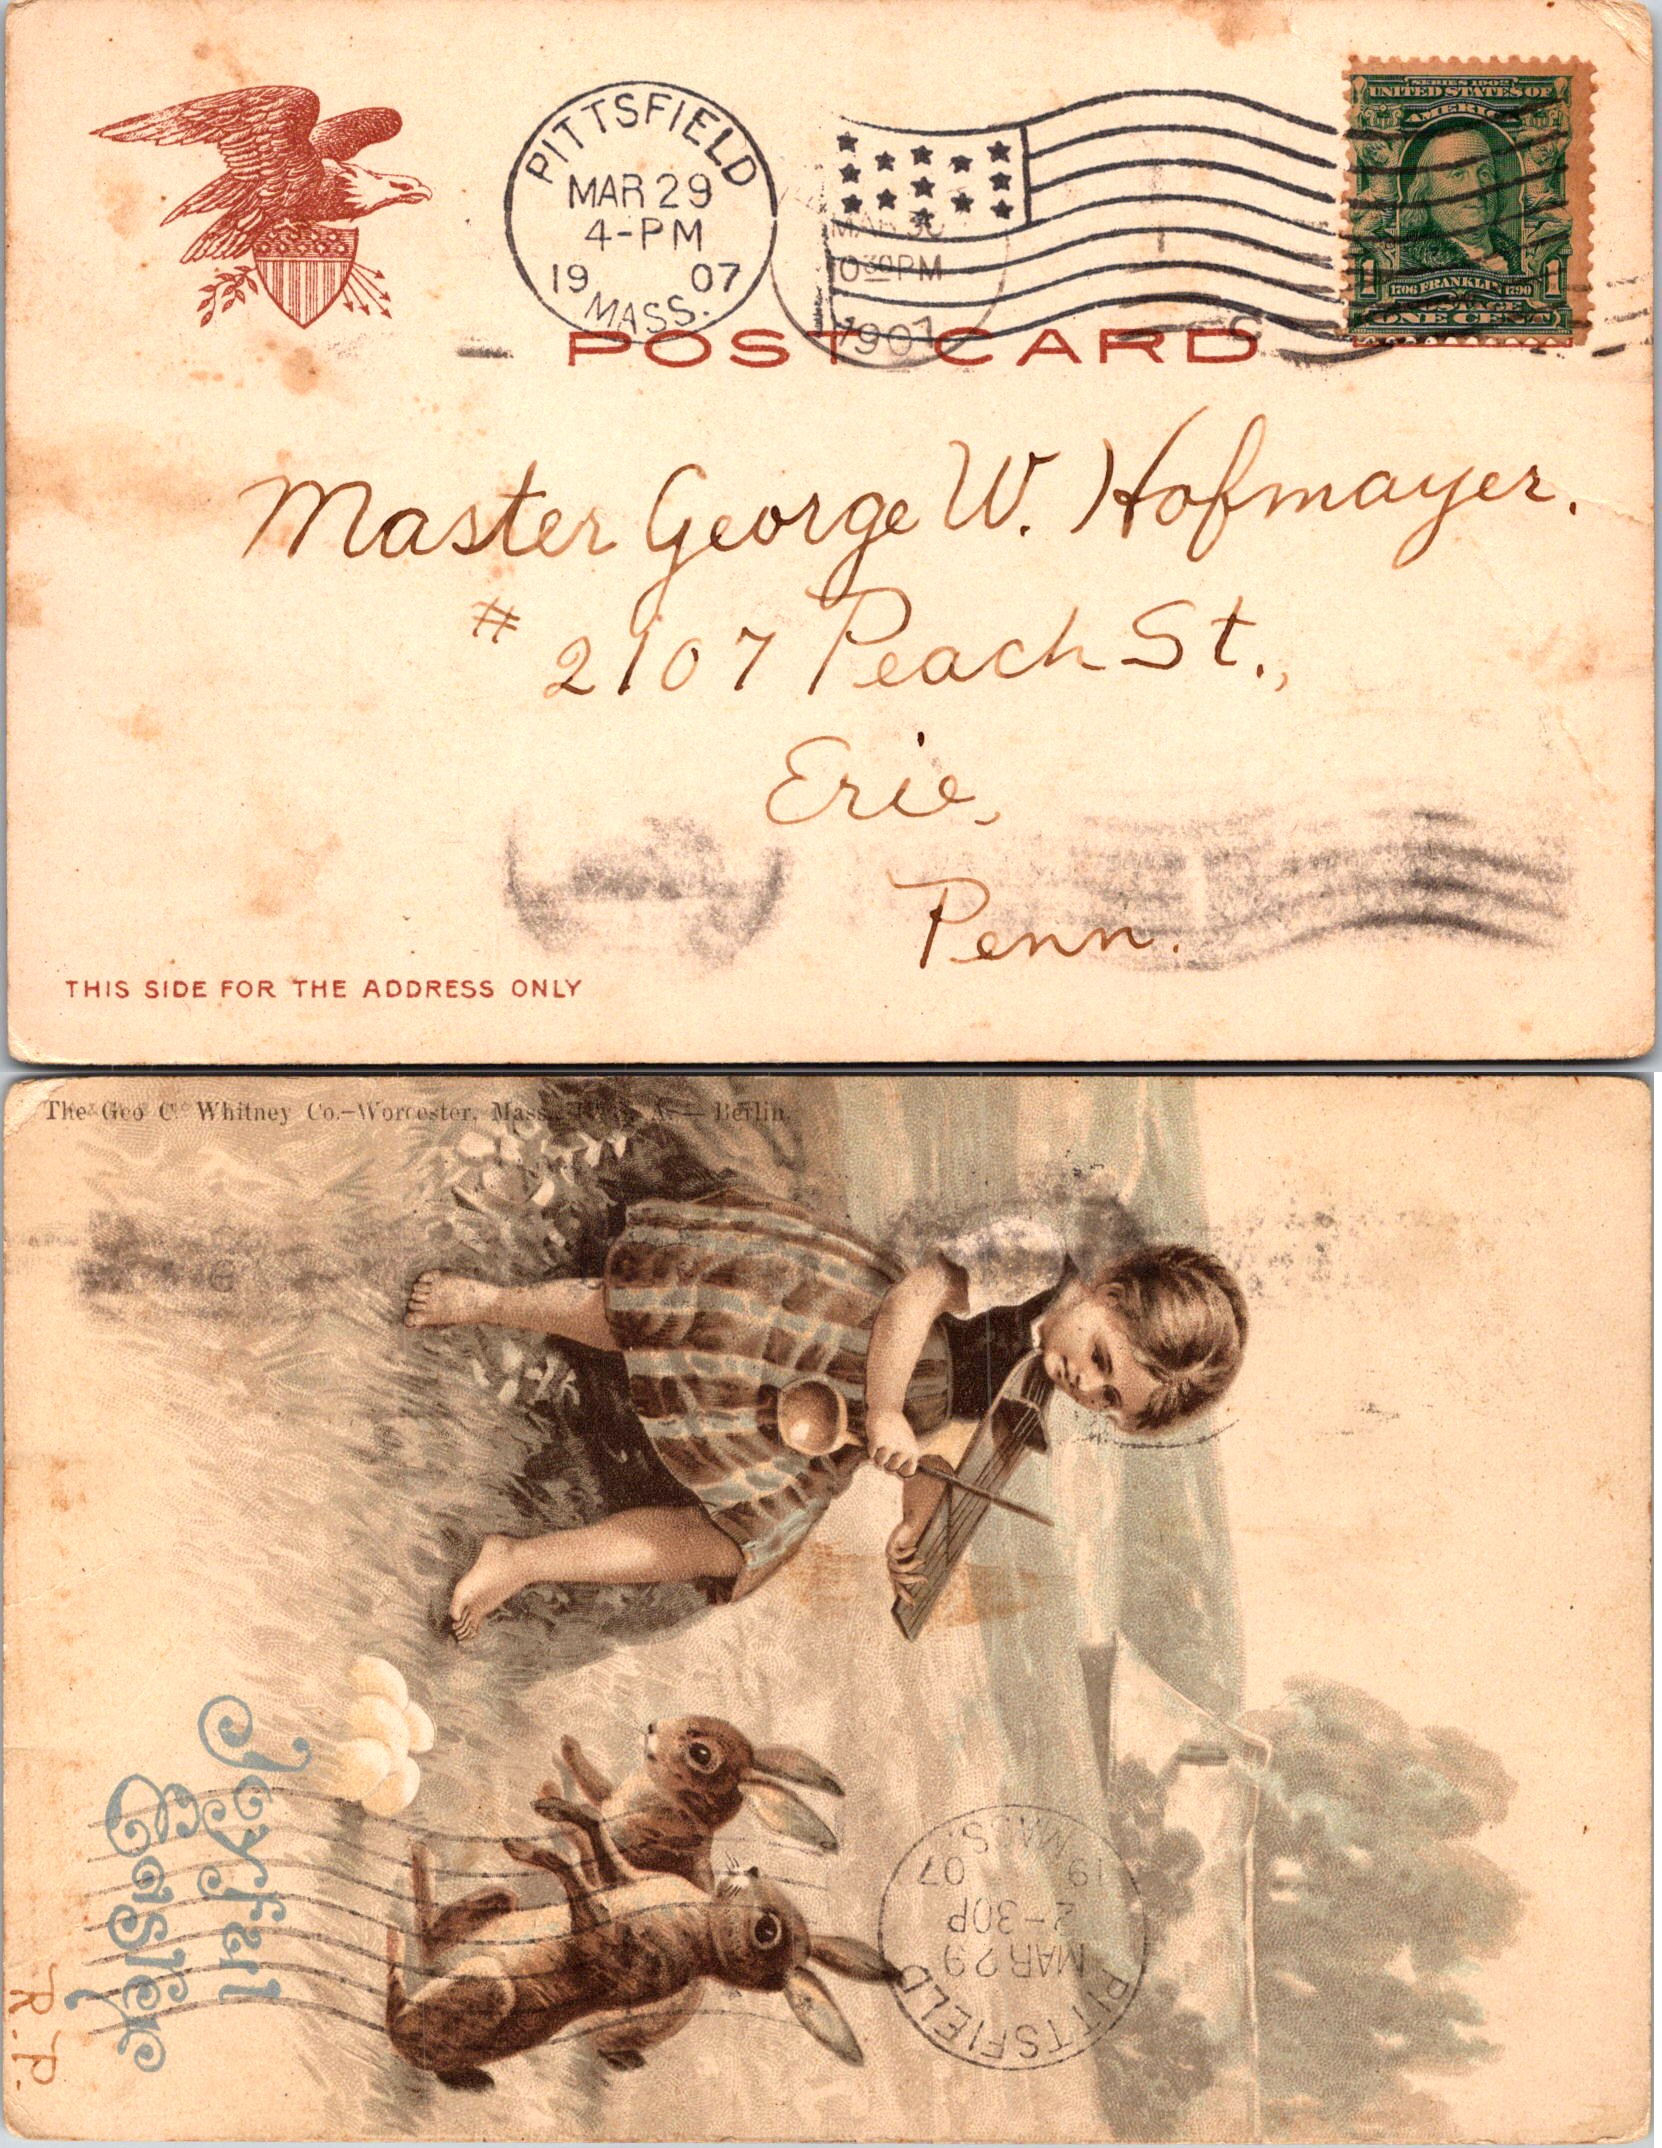 PITTSFIELD
MAR 29
4-PM
19 07
MASS.
MAR 30
1907
SERIES 1902
UNITED STATES OF
AMERICA
1706 FRANKLIN 1790
1 1
POSTAGE
ONE CENT
POST CARD
Master George W. Hofmayer.
# 2107 Peach St.,
Erie,
Penn.
THIS SIDE FOR THE ADDRESS ONLY
The Geo C. Whitney Co.–Worcester, Mass. — Berlin.
Joyful
Easter
R. P.
PITTSFIELD
MAR 29
2-30P
19 07
MASS.